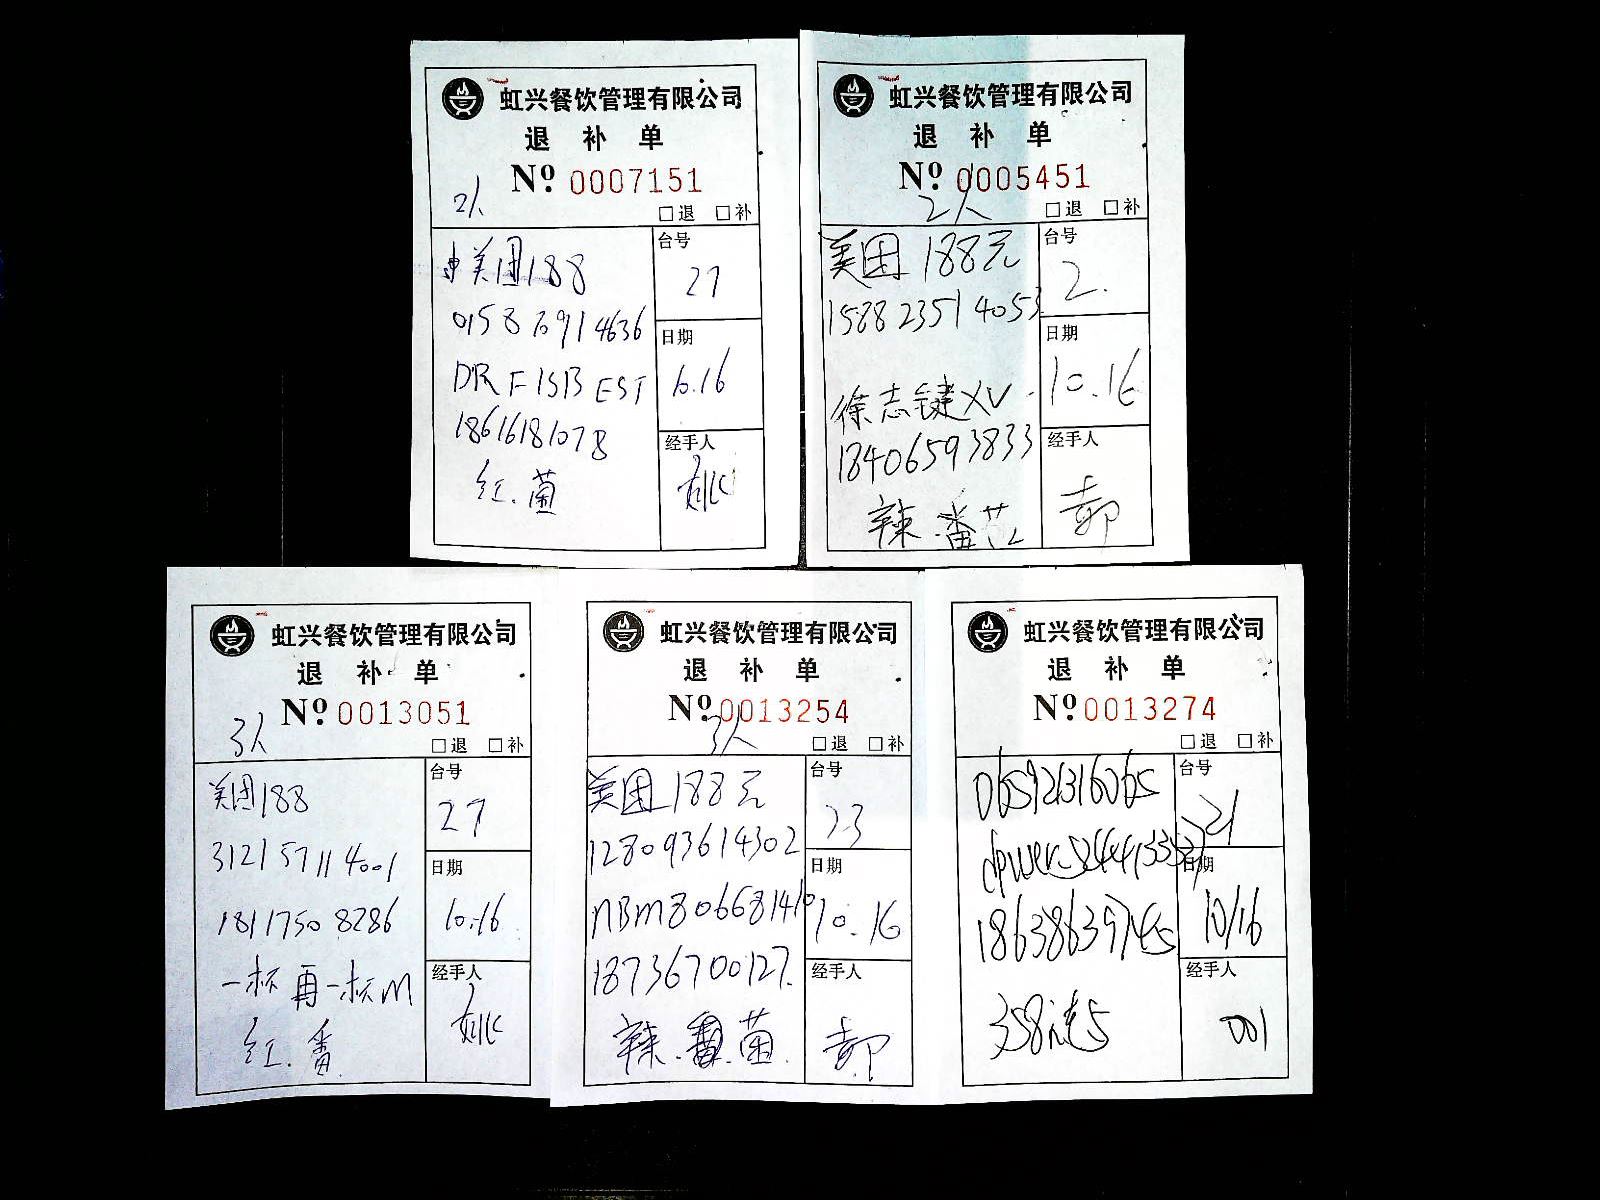 虹兴餐饮管理有限公司
退 补 单
Nº 0007151
2人
□退 □补
美团188
0158 7691 4636
DR F ISB EST
18616181078
红.菌
台号
27
日期
10.16
经手人
姚
虹兴餐饮管理有限公司
退 补 单
Nº 0005451
2人
□退 □补
美团 188元
1588 2351 4053
徐志键XV
18406593833
辣.番茄
台号
2.
日期
10.16
经手人
郭
虹兴餐饮管理有限公司
退 补 单
Nº 0013051
3人
□退 □补
美团188
3121 5711 4001
1811750 8286
一杯再一杯m
红.番
台号
27
日期
10.16
经手人
姚
虹兴餐饮管理有限公司
退 补 单
Nº 0013254
3人
□退 □补
美团 188元
128093614302
nBm806681410
18736700127.
辣.番.菌.
台号
23
日期
10.16
经手人
郭
虹兴餐饮管理有限公司
退 补 单
Nº 0013274
□退 □补
065921316065
18638639745
台号
21
日期
10/16
经手人
001